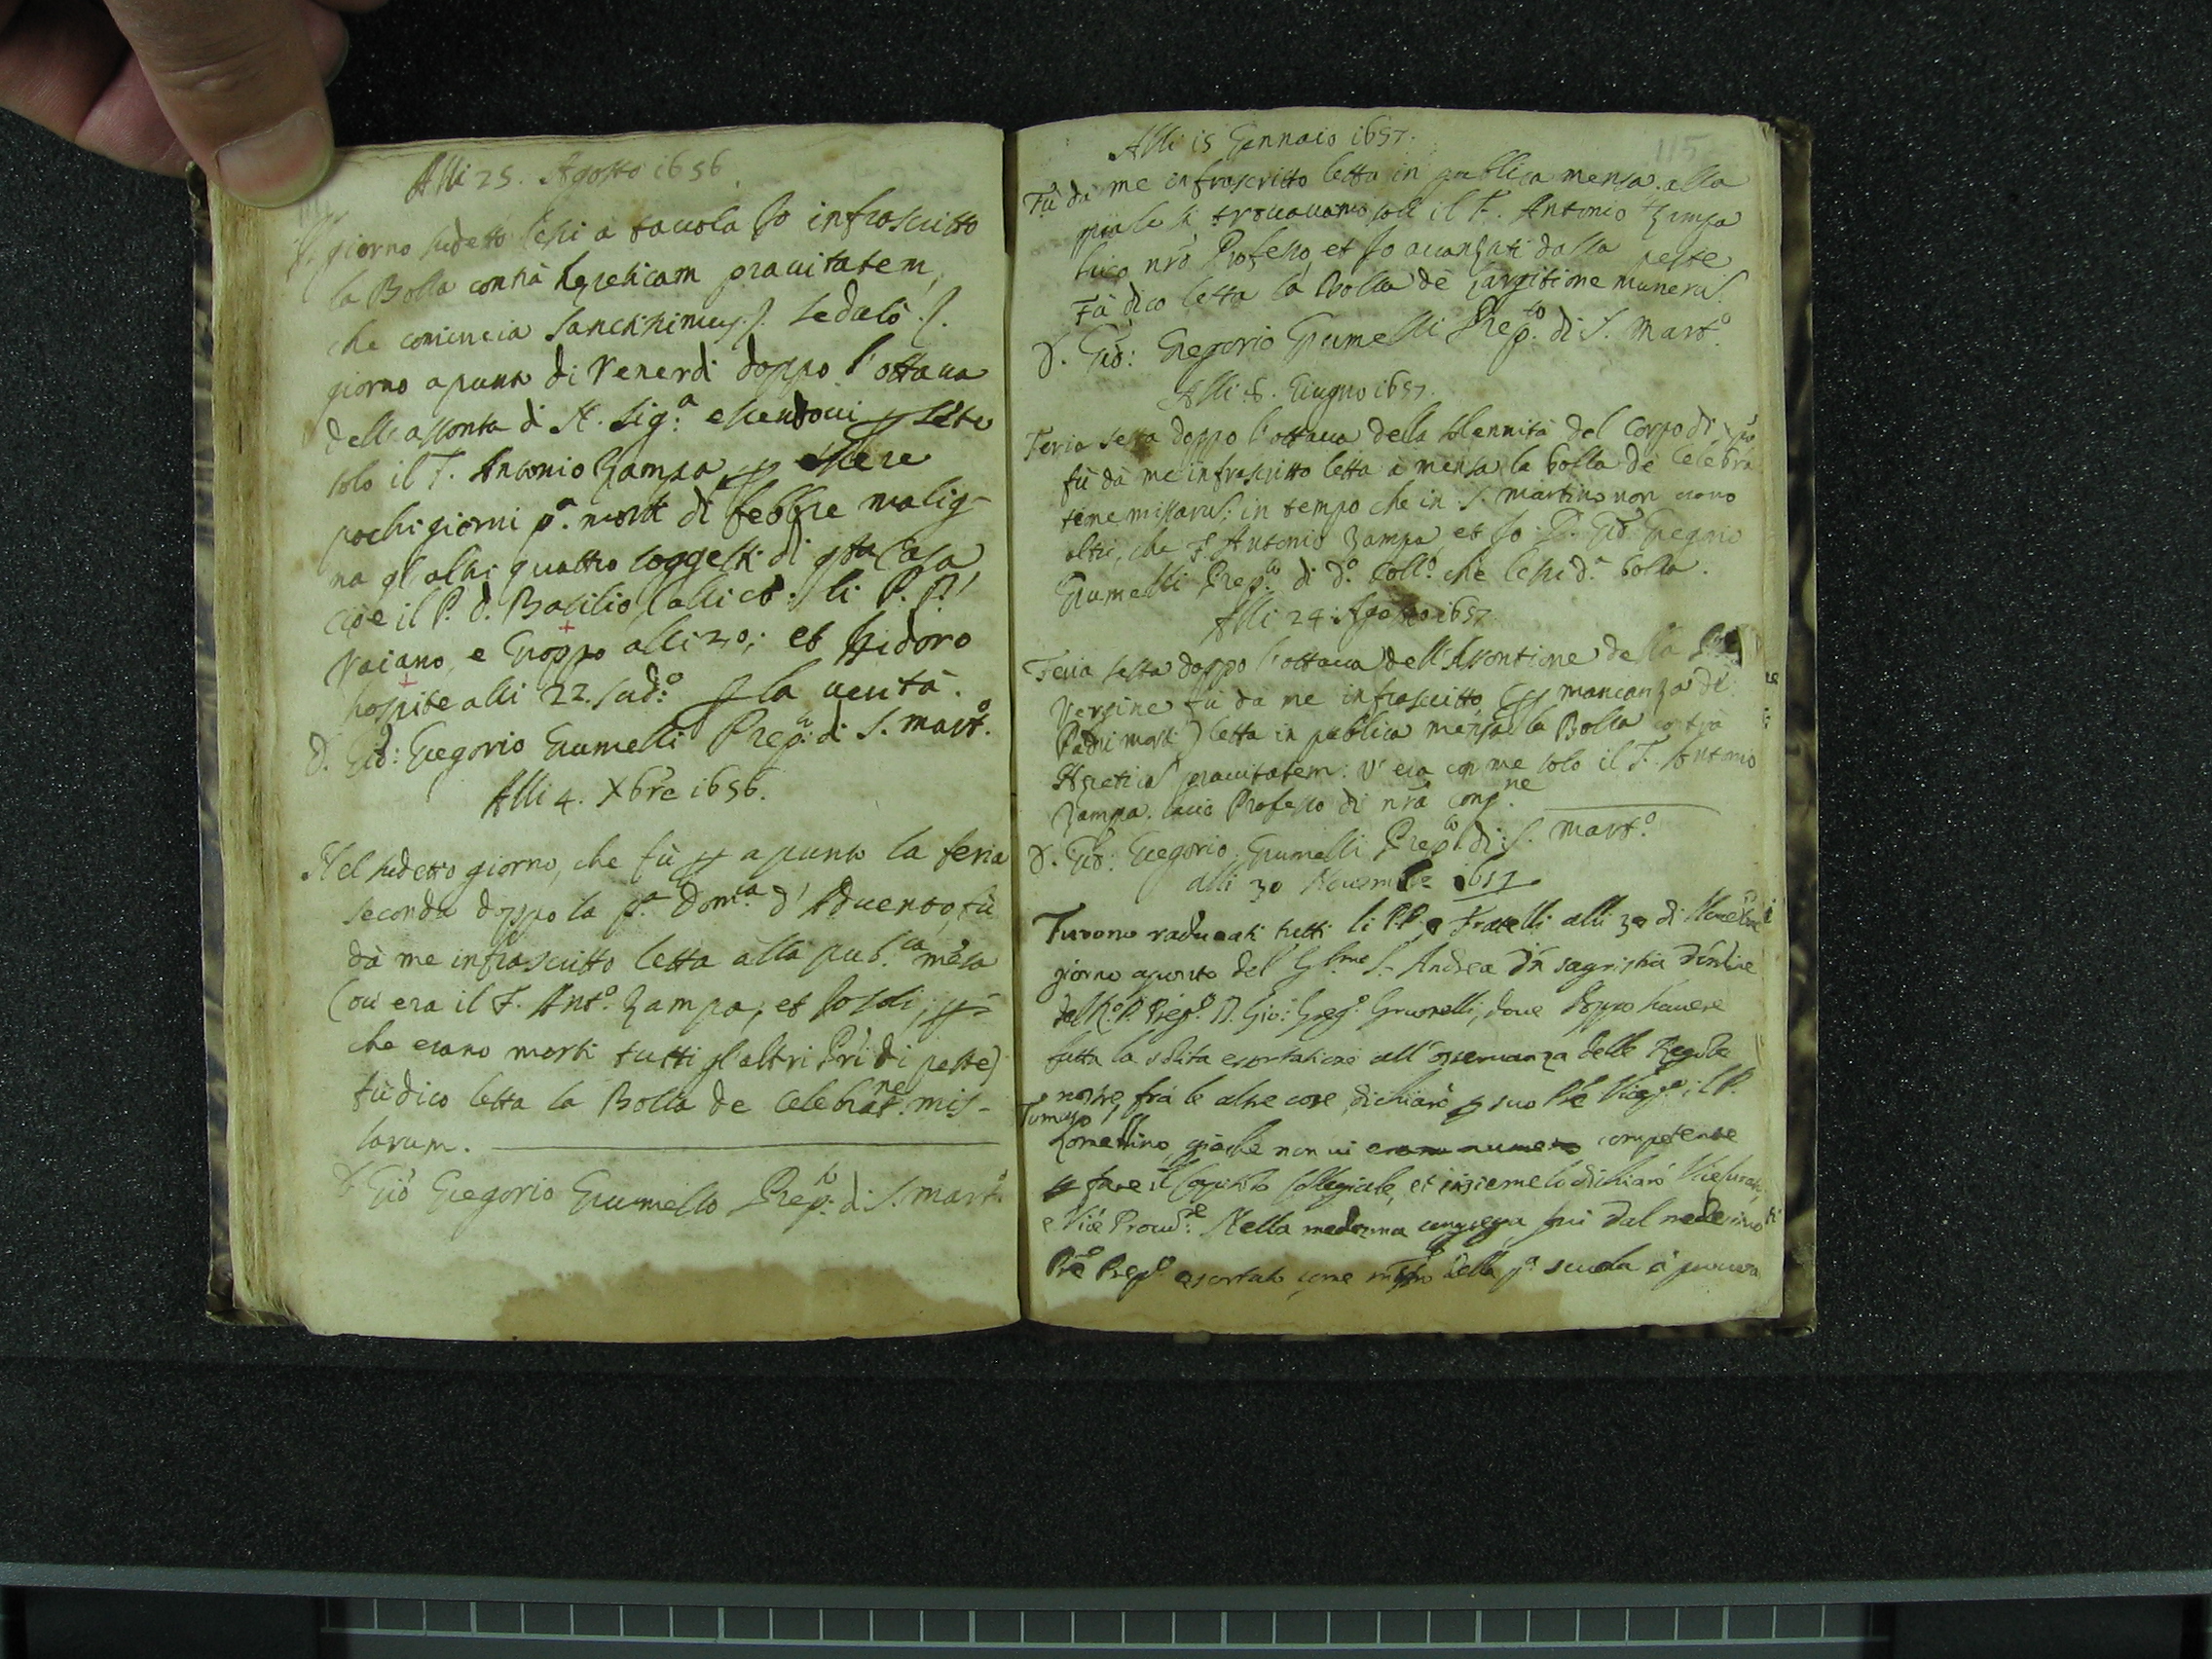 Alli 25. Agosto 1656.
giorno sudetto lessi à tauola Io infrascritto
la Bolla contrà hereticam prauitatem,
che comincia Sanctissimus f. sedatò f.
giorno apunto di Venerdi doppo l'ottaua
dell'assonta di N. Sig.ª essendoui
solo il F. Antonio Zampa, p essere
pochi giorni p.ª morti di febbre malig-
na gl'altri quattro soggetti di qsta Casa
cioè il P. D. Basilio; li P. P.
Vaiano, e Groppo alli 20; et Isidoro
hospite alli 22. sud.º p la uerità.
D. Giō: Gregorio Grumelli Prep.to di S. Mart.º
Alli 4. Xbre 1656.
Nel sudetto giorno, che fù p apunto la feria
seconda doppo la p.ª Dom.ca d'Aduento, fù
dà me infrascritto letta alla pub.ca mēsa
(ou' era il F. Ant.º Zampa, et Io soli, p-
che erano morti tutti gl'altri Pri di peste)
fù dico letta la Bolla de Celebrat.ne mis-
sarum.
D. Giō Gregorio Grumello Prep.to di S. Mart.º
115
Alli 15 Gennaio 1657.
Fù dà me infrascritto letta in publica mensa alla
quale si trouauamo soli il F. Antonio Zampa
laico nrō Professo, et Io auanzati dalla peste
Fù dico letta la Bolla de largitione munerū.
D. Giō: Gregorio Grumelli Prep.to di S. Mart.º
Alli 8. Giugno 1657.
Feria sesta doppo l'ottaua della solennità del Corpo di Xpō
fù dà me infrascritto letta à mensa la bolla de Celebra
tione missarū; in tempo che in S. Martino non erano
altri, che F. Antonio Zampa, et Io D. Giō Gregorio
Grumelli Prep.to di d.º Coll.º che lessi d.ª bolla.
Alli 24 Agosto 1657
Feria sesta doppo l'ottaua dell'Assontione della
Vergine fù da me infrascritto (p mancanza de
Padri morti) letta in publica mensa la Bolla contrà
Hereticā prauitatem: V'era con me solo il F. Antonio
Zampa laico Professo di nrā Cong.ne
D. Giō: Gregorio Grumelli Prep.to di S. Mart.º
alli 30 Nouembre 1657.
Furono radunati tutti li P.P. e Fratelli alli 30 di
giorno apunto del S. Andrea in sagristia
dal M.º P. Prep.º D. Gio: Greg.º Grumelli, doue doppo hauere
fatta la solita esortatione all'osseruanza delle Regole
nostre, frà le altre cose, dichiarò p suo il P.
Tomaso
Lomellino, giache non ui erano numero competente
p fare il Capitolo Collegiale, et insieme lo dichiarò Vicecurato,
e Vice Proud.re Nella medesima congrega fui dal medesimo
Prē Prep.º esortato, come mrō della p.ª scuola à procura